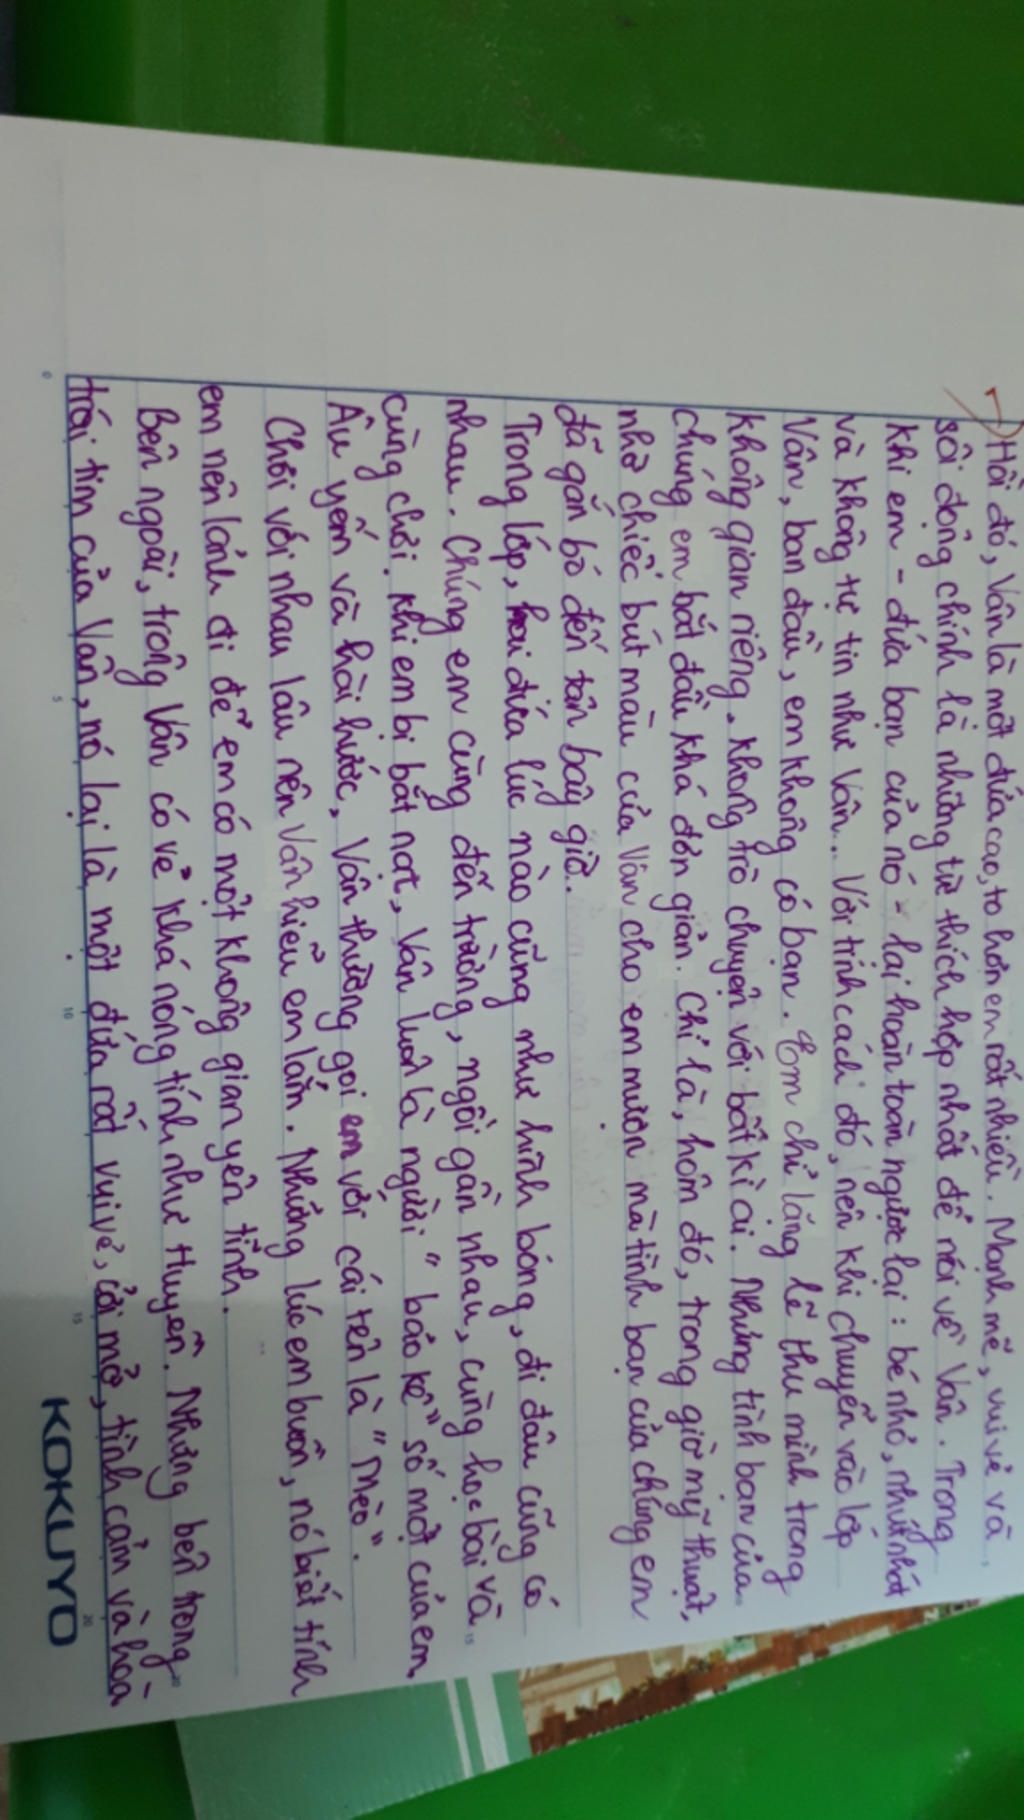 Hồi đó, Vân là một đứa cao, to hơn em rất nhiều. Mạnh mẽ, vui vẻ và
sôi động chính là những từ thích hợp nhất để nói về Vân. Trong
khi em - đứa bạn của nó - lại hoàn toàn ngược lại: bé nhỏ, nhút nhát
và không tự tin như Vân.. Với tính cách đó, nên khi chuyển vào lớp
Vân, ban đầu, em không có bạn. Em chỉ lẳng lẽ thu mình trong
không gian riêng. Không trò chuyện với bất kì ai. Nhưng tình bạn của
chúng em bắt đầu khá đơn giản. Chỉ là, hôm đó, trong giờ mỹ thuật,
nhờ chiếc bút màu của Vân cho em mượn mà tình bạn của chúng em
đã gắn bó đến tận bây giờ.
Trong lớp, hai đứa lúc nào cũng như hình bóng, đi đâu cũng có
nhau. Chúng em cùng đến trường, ngồi gần nhau, cùng học bài và
cùng chơi. Khi em bị bắt nạt, Vân luôn là người "bảo kê" số một của em.
Âu yếm và hài hước, Vân thường gọi em với cái tên là "Mèo".
Chơi với nhau lâu nên Vân hiểu em lắm. Những lúc em buồn, nó biết tính
em nên lánh đi để em có một không gian yên tĩnh.
Bên ngoài, trông Vân có vẻ khá nóng tính như Huyền. Nhưng bên trong
trái tim của Vân, nó lại là một đứa rất vui vẻ, cởi mở, tình cảm và hòa
0 5 10 15 20
KOKUYO